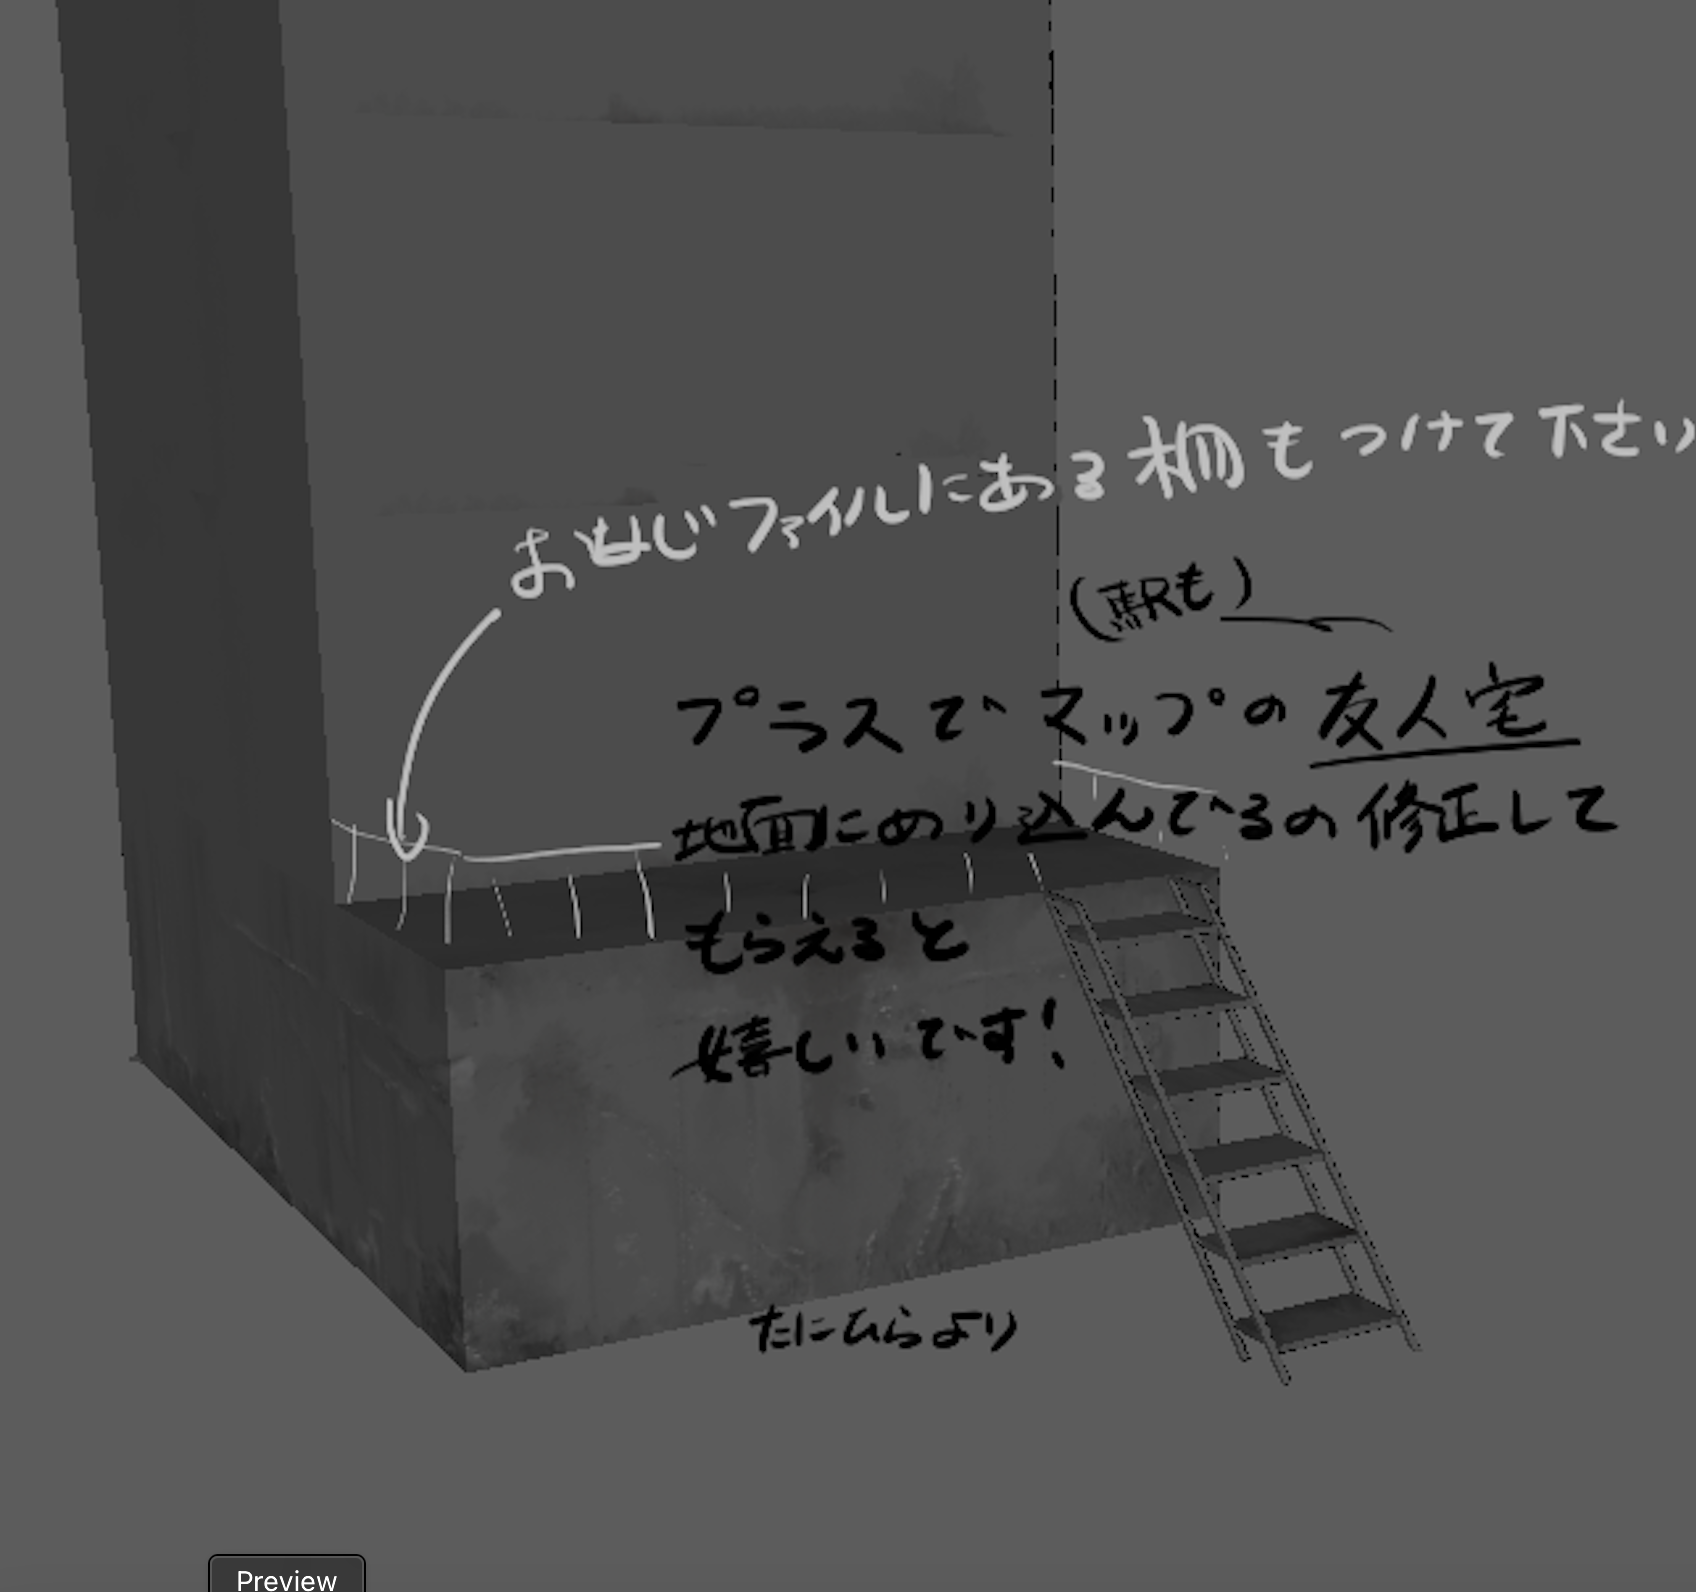 おなじファイルにある柵もつけて下さい
(駅も)
プラスでマップの友人宅
地面にめり込んでいるの修正して
もらえると
嬉しいです!
たにひらより
Preview